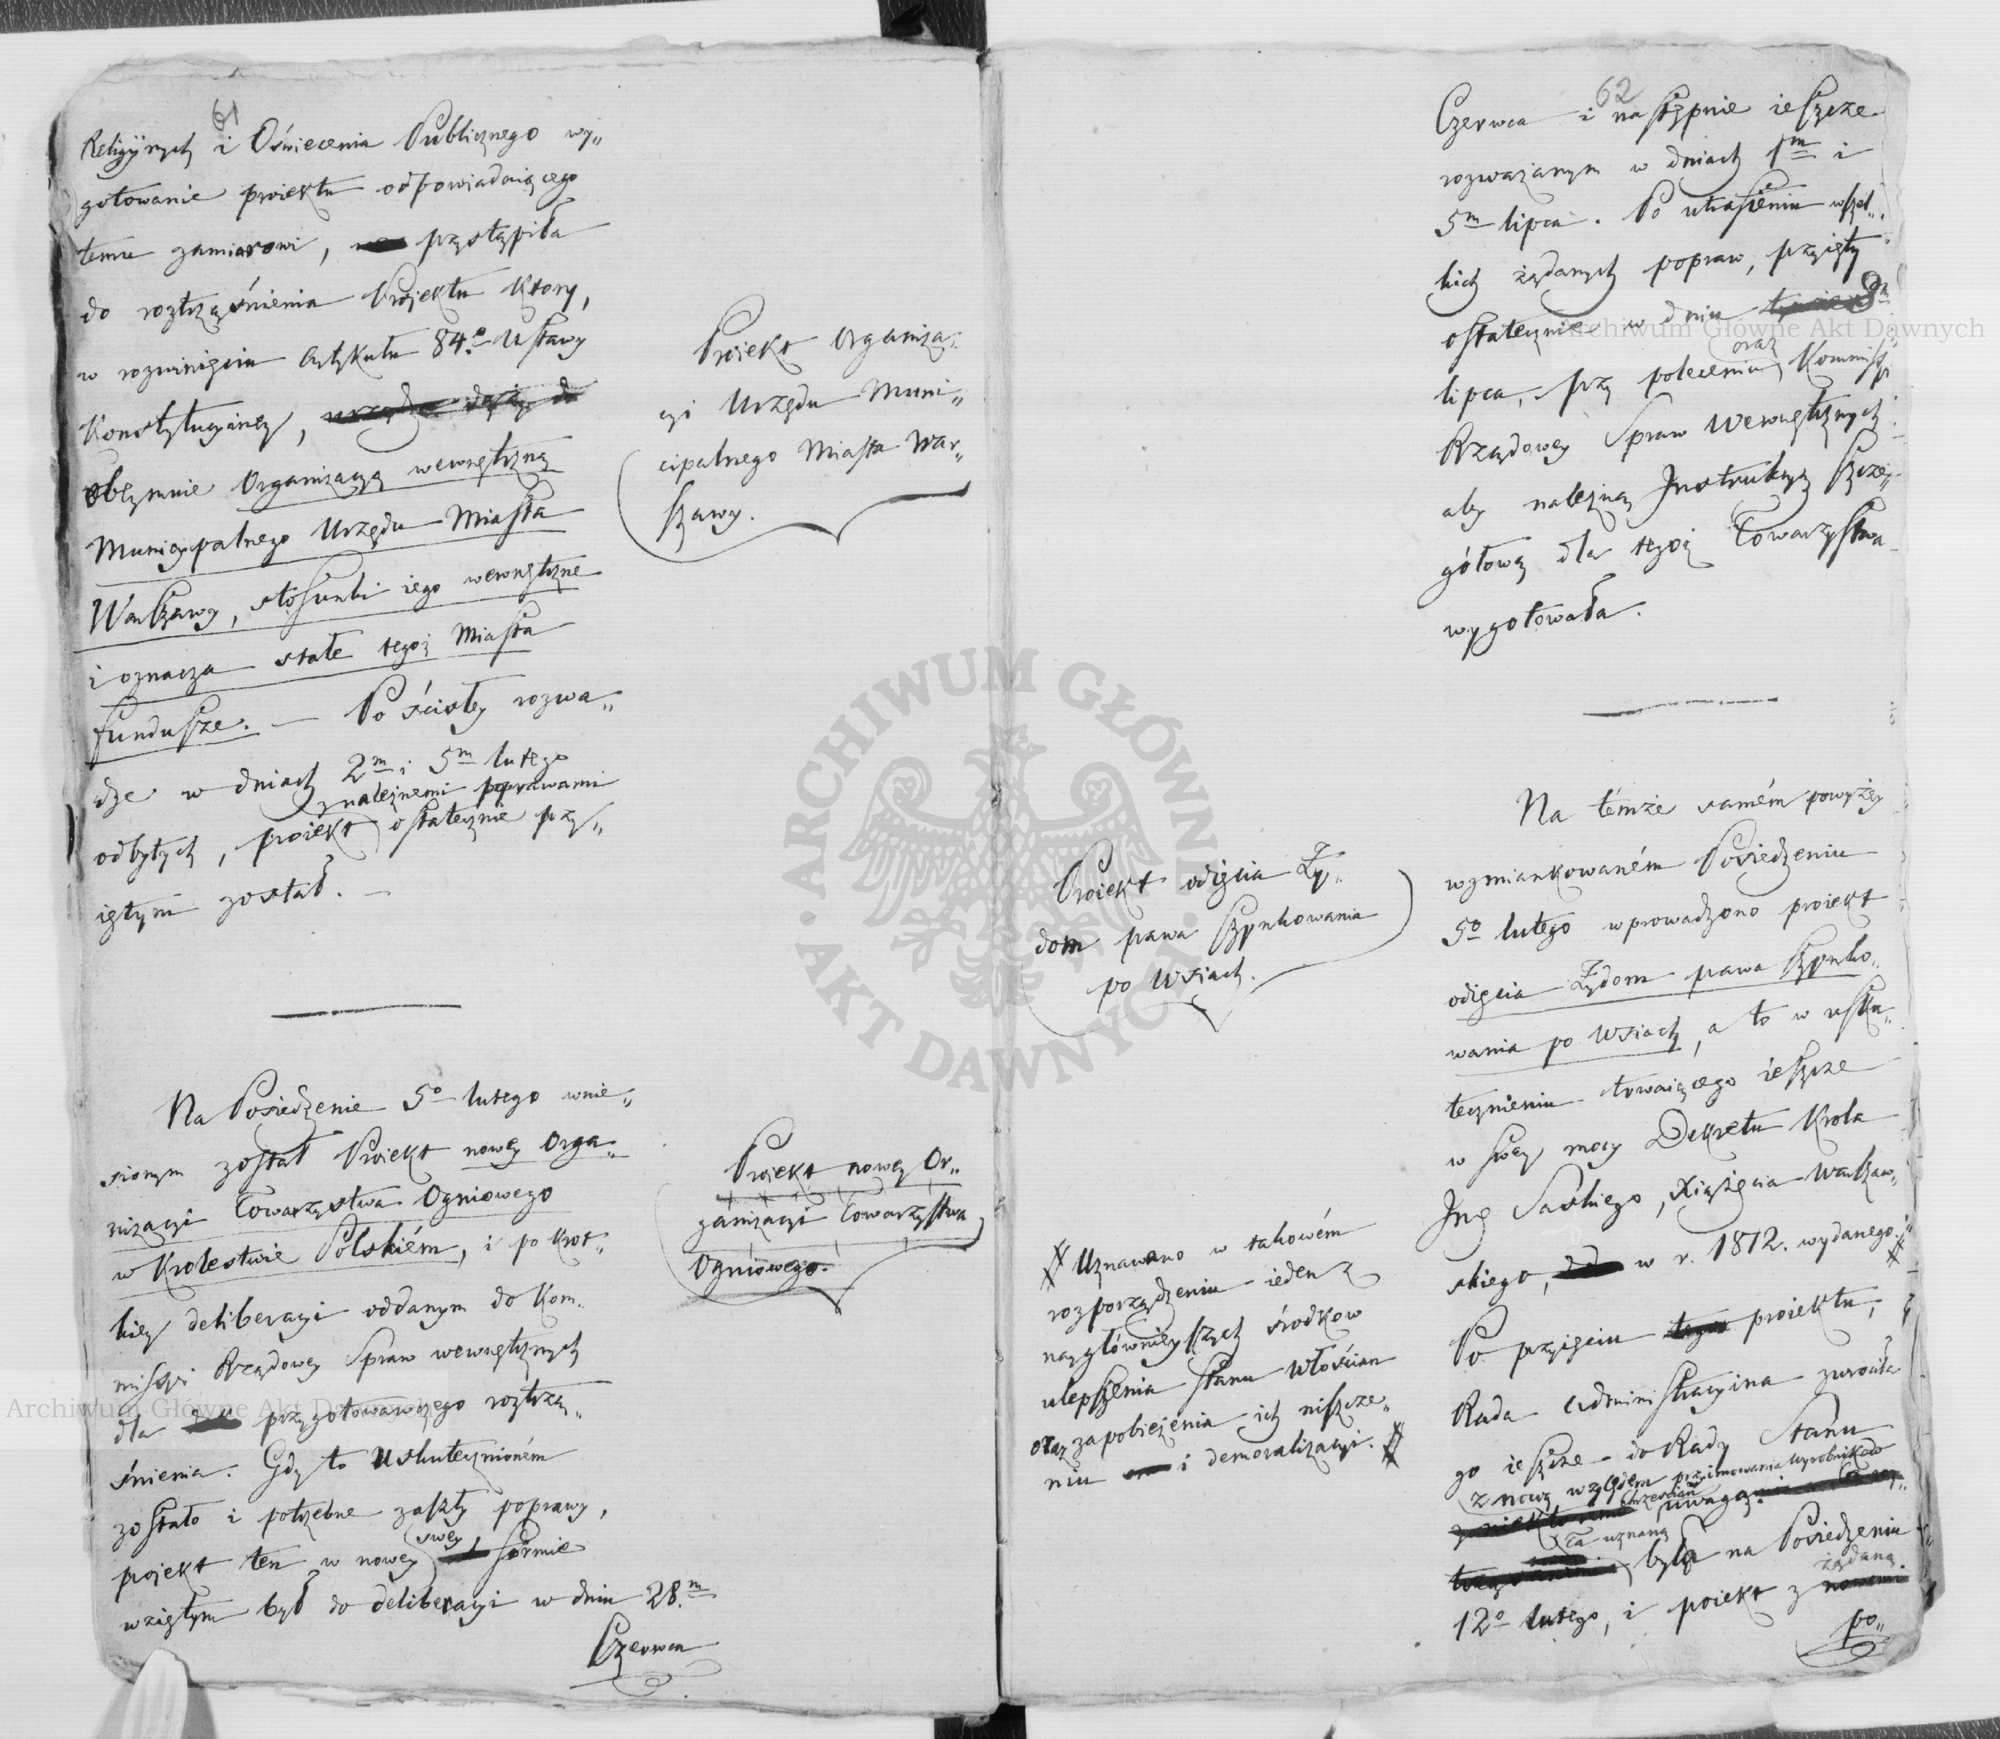 61
Religijnych i Oświecenia Publicznego wy„
gotowanie proiektu odpowiadaiącego
temu zamiarowi, przystąpiła
do roztrząśnienia Projektu ktory,
w rozwinięciu Artykułu 84º Ustawy
Konstytucyiney,
obeymuie Organizacyą wewnętrzną
Municypalnego Urzędu Miasta
Warszawy, stosunki iego wewnętrzne
i oznacza stałe tegoż Miasta
fundusze. — Po ścisłey rozwa„
dze w dniach 2m i 5m lutego
z należnemi poprawami
odbytych, proiekt ostatecznie przy„
iętym został. —
Proiekt Organiza„
cyi Urzędu Muni„
cipalnego Miasta War„
szawy.
Na Posiedzenie 5º lutego wnie„
sionym został Proiekt nowey Orga„
nizacyi Towarzystwa Ogniowego
w Krolestwie Polskiém, i po krot„
kiey deliberacyi oddanym do Kom„
missyi Rządowey Spraw wewnętrznych
dla przygotowawczego roztrzą„
śnienia. Gdy to uskutecznioném
zostało i potrzebne zaszły poprawy,
projekt ten w nowey swey formie
wziętym był do deliberacyi w dniu 28.m
Czerwca
Proiekt nowey Or„
ganizacyi Towarzystwa
Ogniowego.
62
Czerwca i następnie ieszcze
rozważanym w dniach 1m i
5m lipca. Po utrafieniu wszel„
kich żądanych popraw, przyięty
ostatecznie w dniu 8m
lipca, przy poleceniu oraz Kommissyi
Rządowey Spraw Wewnętrznych
aby należną Instrukcyą szcze„
gółową dla tegoż Towarzystwa
wygotowała.
Na témże samém powyżey
wzmiankowaném Posiedzeniu
5º lutego wprowadzono proiekt
odięcia Żydom prawa szynko„
wania po Wsiach, a to w usku„
tecznieniu trwaiącego ieszcze
w swey mocy Dekretu Krola
Jmć Saskiego, Xiążęcia Warszaw„
skiego, w r. 1812. wydanego.
Po przyięciu proiektu,
Rada Administracyina zwrociła
go ieszcze do Rady Stanu
z nową względem przyimowania wyrobników
chrześcian uwagą.
Ta uznaną była na Posiedzeniu
12º lutego, i proiekt z żądaną
po„
Proiekt odięcia Ży„
dom prawa szynkowania
po Wsiach.
# Uznawano w takowém
rozporządzeniu ieden z
naygłównieyszych środkow
ulepszenia stanu Włościan
oraz zapobieżenia ich niszcze„
niu i demoralizacyi. #
ARCHIWUM GŁÓWNE AKT DAWNYCH
Archiwum Główne Akt Dawnych
Archiwum Główne Akt Dawnych